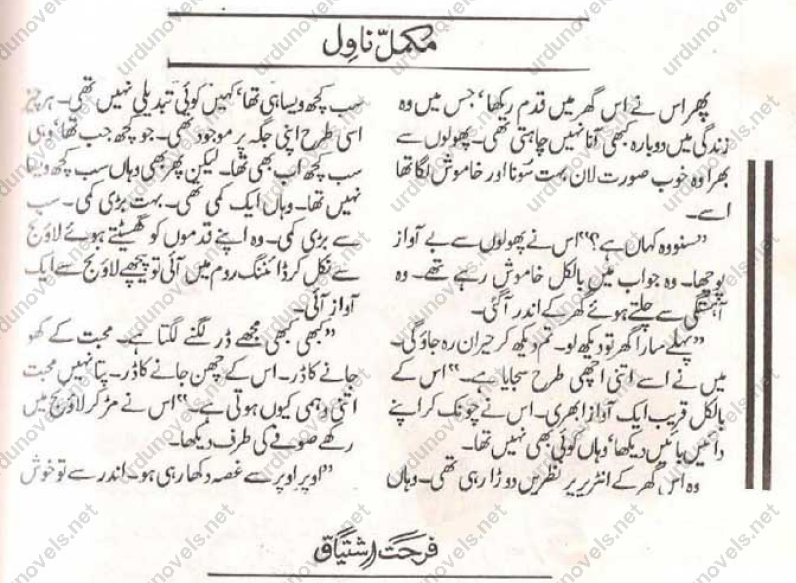 مکمل ناول
پھر اس نے اس گھر میں قدم رکھا، جس میں وہ
زندگی میں دوبارہ کبھی آنا نہیں چاہتی تھی۔ پھولوں سے
بھرا وہ خوب صورت لان بہت سُونا اور خاموش لگا تھا
اسے۔
”سنو وہ کہاں ہے؟“ اس نے پھولوں سے بے آواز
پوچھا۔ وہ جواب میں بالکل خاموش رہے تھے۔ وہ
آہستگی سے چلتے ہوئے گھر کے اندر آ گئی۔
”پہلے سارا گھر تو دیکھ لو۔ تم دیکھ کر حیران رہ جاؤ گی۔
میں نے اسے اتنی اچھی طرح سجایا ہے۔“ اس کے
بالکل قریب ایک آواز ابھری۔ اس نے چونک کر اپنے
دائیں بائیں دیکھا، وہاں کوئی بھی نہیں تھا۔
وہ اس گھر کے انٹریر پر نظریں دوڑا رہی تھی۔ وہاں
سب کچھ ویسا ہی تھا، کہیں کوئی تبدیلی نہیں تھی۔ ہر چیز
اسی طرح اپنی جگہ پر موجود تھی۔ جو کچھ جب تھا، وہی
سب کچھ اب بھی تھا۔ لیکن پھر بھی وہاں سب کچھ ویسا
نہیں تھا۔ وہاں ایک کمی تھی۔ بہت بڑی کمی۔ سب
سے بڑی کمی۔ وہ اپنے قدموں کو گھسیٹتے ہوئے لاؤنج
سے نکل کر ڈائننگ روم میں آئی تو پیچھے لاؤنج سے ایک
آواز آئی۔
”کبھی کبھی مجھے ڈر لگنے لگتا ہے۔ محبت کے کھو
جانے کا ڈر۔ اس کے چھن جانے کا ڈر۔ پتا نہیں محبت
اتنی وہمی کیوں ہوتی ہے۔“ اس نے مڑ کر لاؤنج میں
رکھے صوفے کی طرف دیکھا۔
”اوپر اوپر سے غصہ دکھا رہی ہو۔ اندر سے تو خوش
فرحت اشتیاق
urdunovels.net